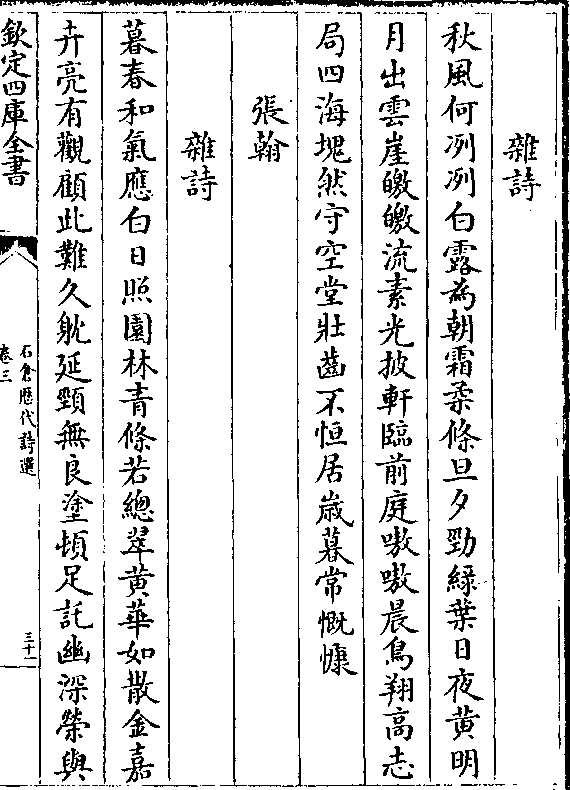 雜詩
秋風何冽冽白露為朝霜柔條旦夕勁綠葉日夜黃明
月出雲崖皦皦流素光披軒臨前庭嗷嗷晨鳥翔高志
局四海塊然守空堂壯齒不恒居歲暮常慨慷
張翰
雜詩
暮春和氣應白日照園林青條若總翠黃華如散金嘉
卉亮有觀顧此難久躭延頸無良塗頓足託幽深榮與
欽定四庫全書
石倉歷代詩選
卷三
三十一